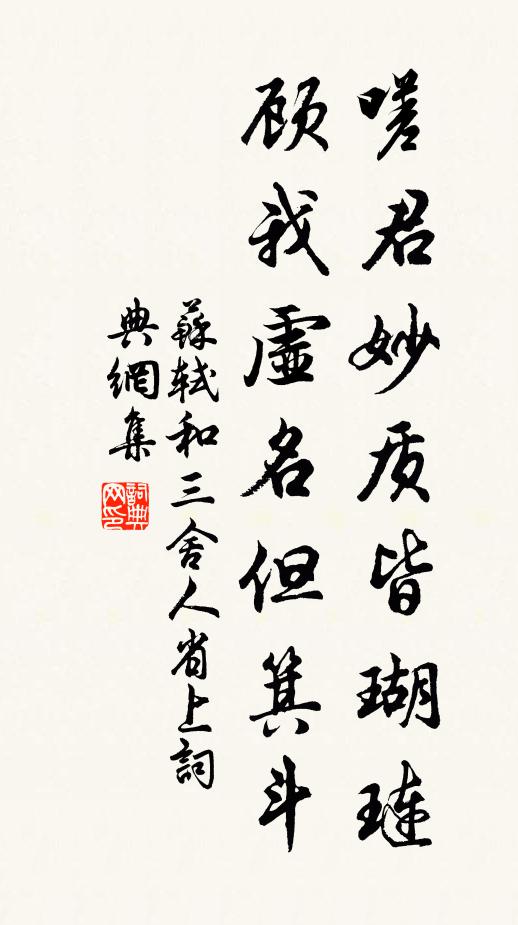 嗟君妙质皆瑚琏
顾我虚名但箕斗
蘇轼和三舍人省上詞
典網集
詞典網印